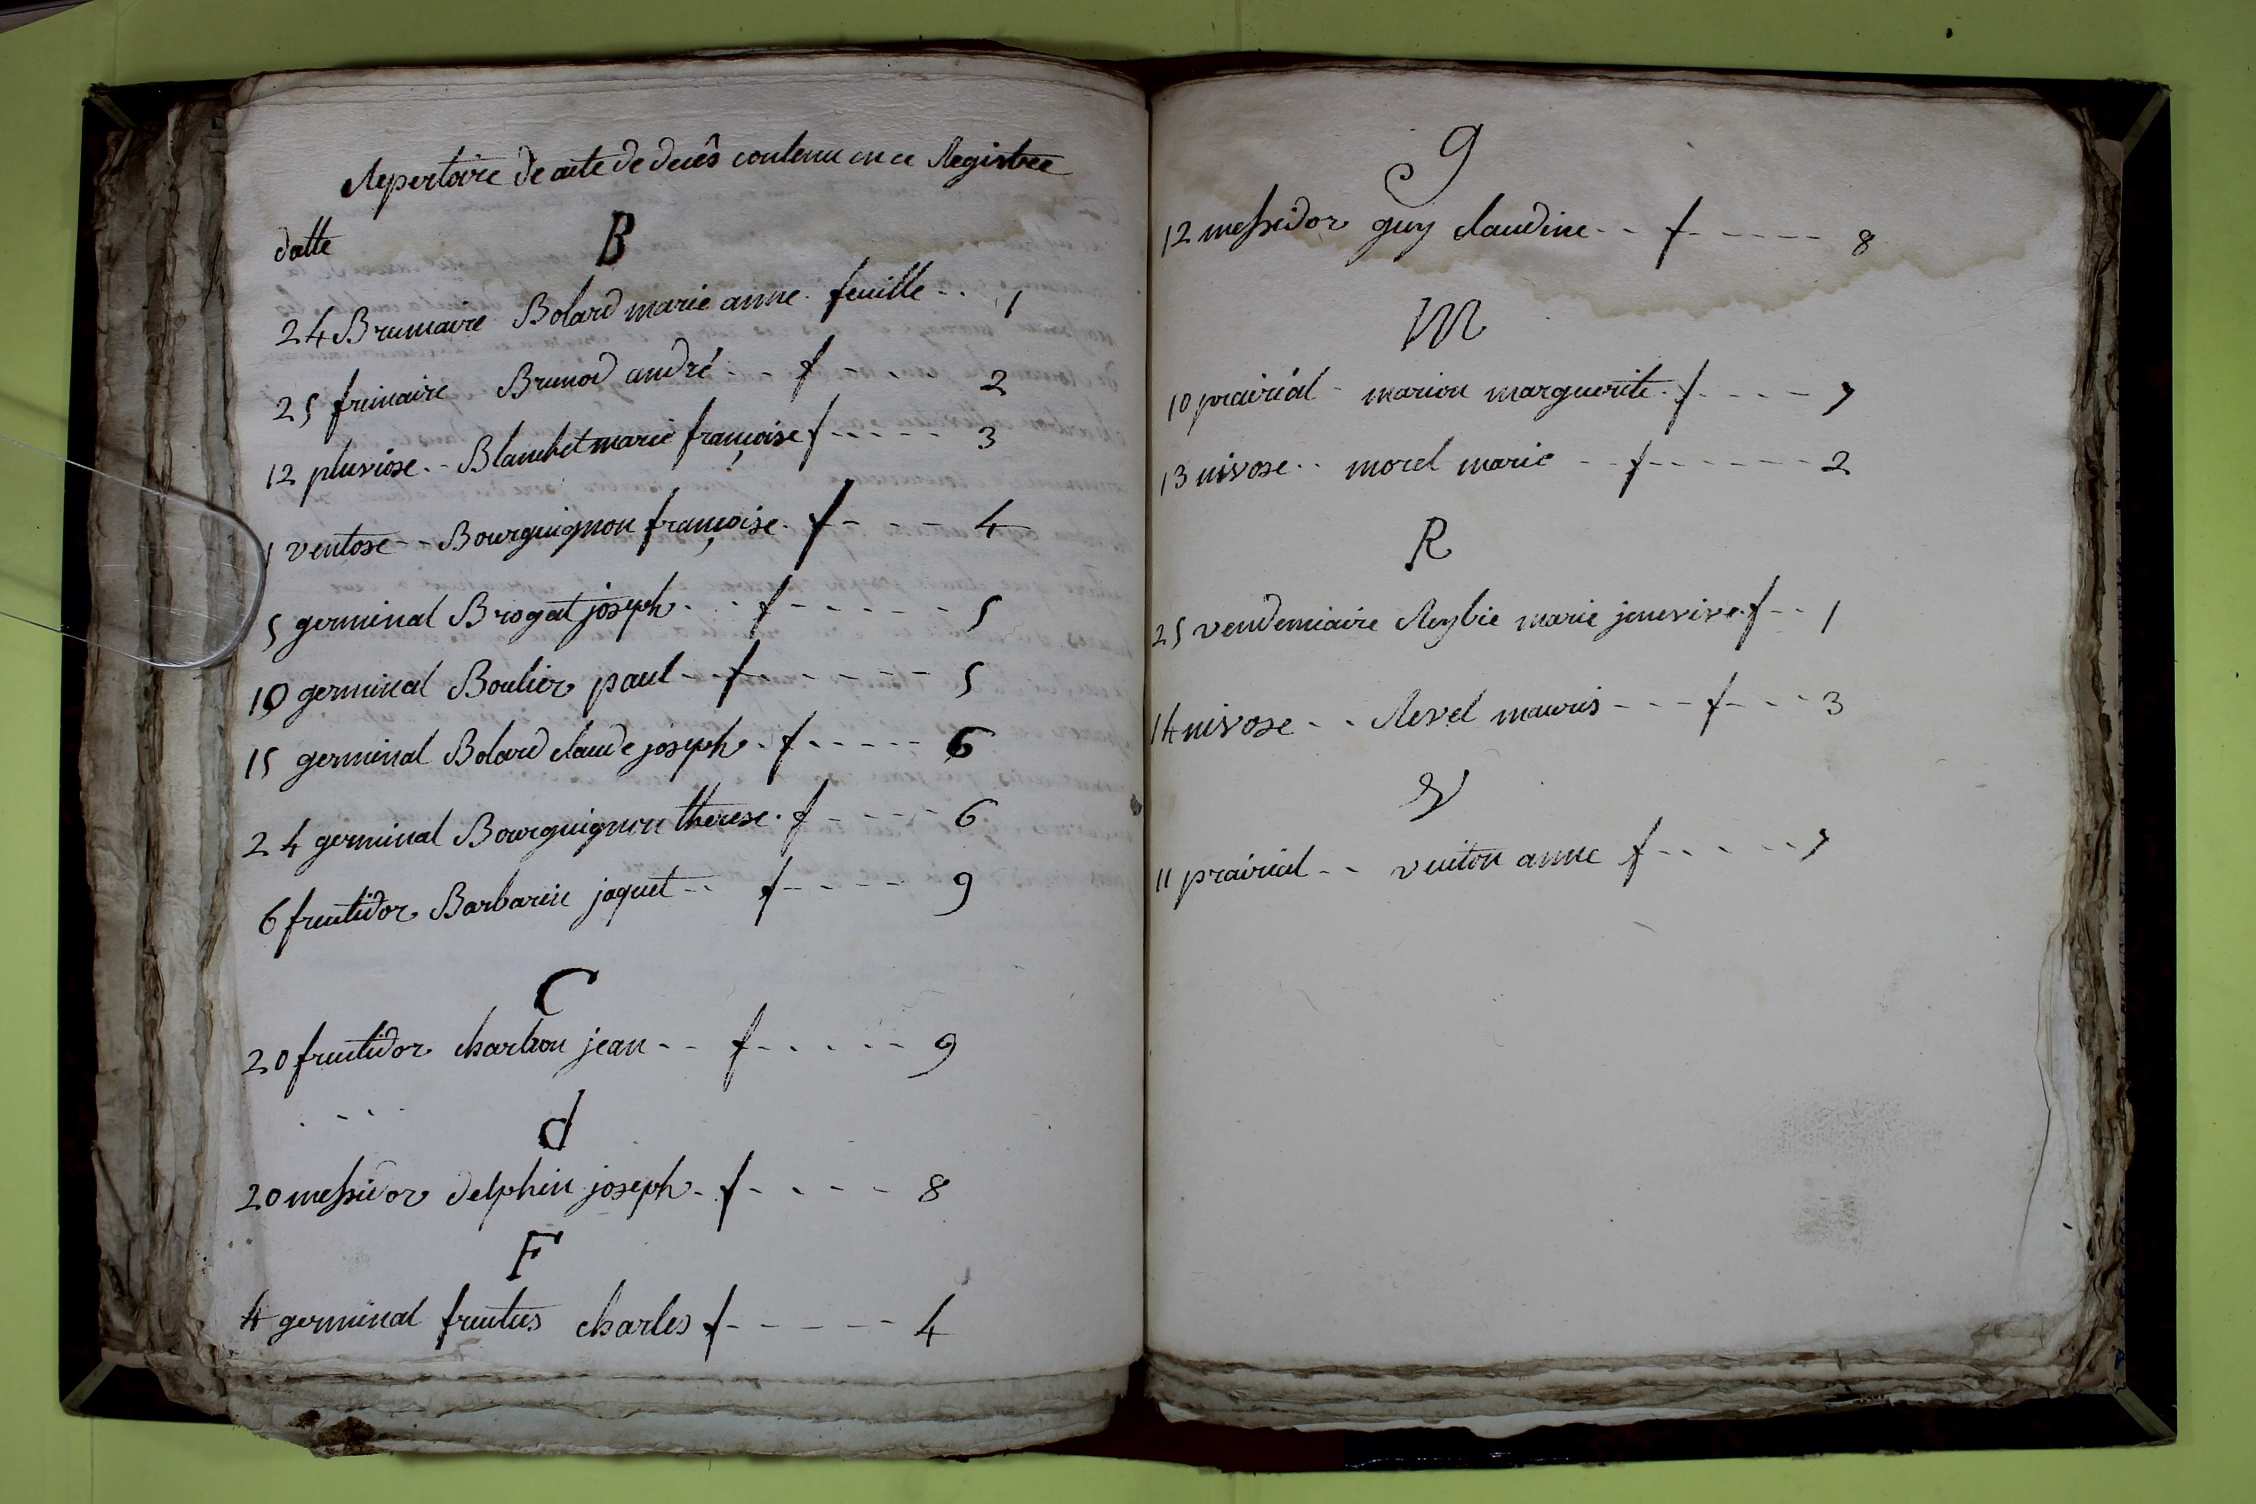 Repertoire de acte de decès contenu en ce Registre
datte
B
24 Brumaire Bolard marie anne. feuille - . 1
25 frimaire Brunod andré - - . f - . - . - 2
12 pluviose . - Blanchet marie françoise f - . - . - 3
1 ventose - - Bourguignon françoise . f - . - . - 4
5 germinal Brogat joseph . - . f - - - - - - 5
10 germinal Boulier paul - - f - - - - - - - 5
15 germinal Bolard claude joseph . f - - - - - 6
24 germinal Bourguignon therese . f - - - - - 6
6 fructidor Barbarin jaquet - - f - - - - - 9
C
20 fructidor charbon jean - - f - . - . - - 9
d
20 messidor delphin joseph - f - - - - - 8
F
4 germinal fruitus charles f - - - - - 4
g
12 messidor guy claudine - - f - - - - - 8
M
10 prairial - marion marguerite . f - - - - 7
13 nivose . . morel marie - - f - - - - - - 2
R
25 vendemiaire Reybie marie jenevive . f - - 1
14 nivose - - Revel mauris - - - f - - - 3
V
11 prairial - - vuiton anne f - - - - - 7